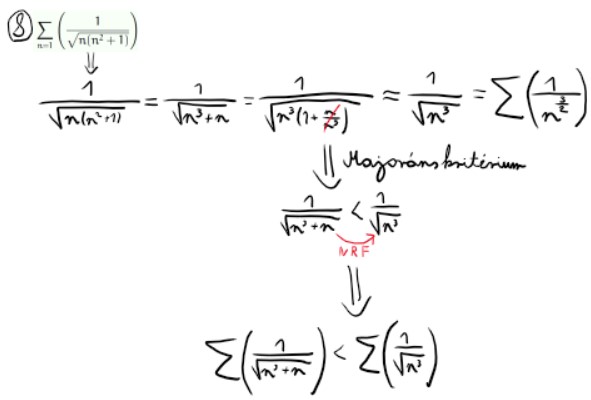 8) \sum_{n=1} \left( \frac{1}{\sqrt{n(n^2+1)}} \right)
⇓
\frac{1}{\sqrt{n(n^2+1)}} = \frac{1}{\sqrt{n^3+n}} = \frac{1}{\sqrt{n^3(1+\frac{n}{n^3})}} ≈ \frac{1}{\sqrt{n^3}} = \sum \left( \frac{1}{n^{\frac{3}{2}}} \right)
⇓ Majoráns kritérium
\frac{1}{\sqrt{n^3+n}} < \frac{1}{\sqrt{n^3}}
NRF
⇓
\sum \left( \frac{1}{\sqrt{n^3+n}} \right) < \sum \left( \frac{1}{\sqrt{n^3}} \right)